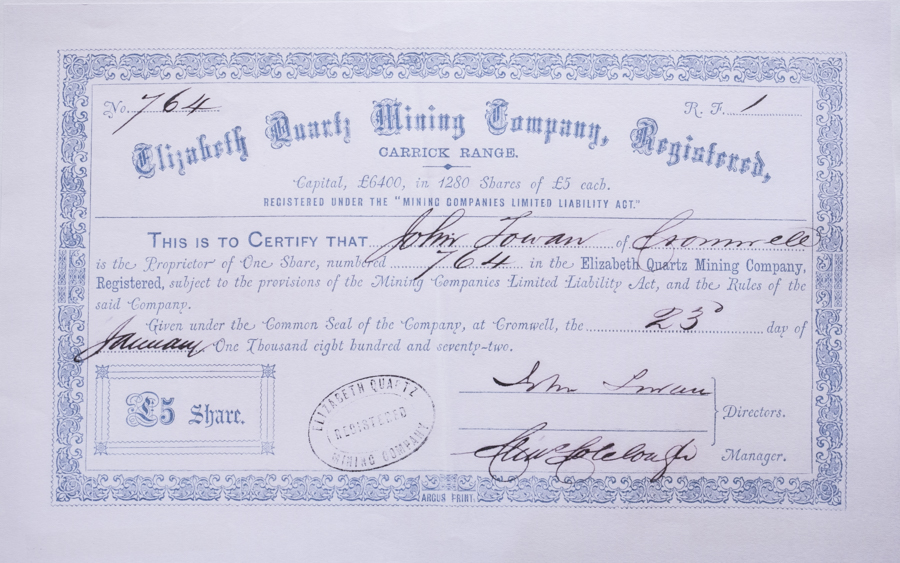 No. 764 R. F. 1
Elizabeth Quartz Mining Company, Registered,
CARRICK RANGE.
Capital, £6400, in 1280 Shares of £5 each.
REGISTERED UNDER THE "MINING COMPANIES LIMITED LIABILITY ACT."
THIS IS TO CERTIFY THAT John Towan of Cromwell
is the Proprietor of One Share, numbered 764 in the Elizabeth Quartz Mining Company,
Registered, subject to the provisions of the Mining Companies Limited Liability Act, and the Rules of the
said Company.
Given under the Common Seal of the Company, at Cromwell, the 23 day of
January One Thousand eight hundred and seventy-two.
£5 Share.
ELIZABETH QUARTZ
REGISTERED
MINING COMPANY
John Towan
Directors.
Colclough
Manager.
ARGUS PRINT.